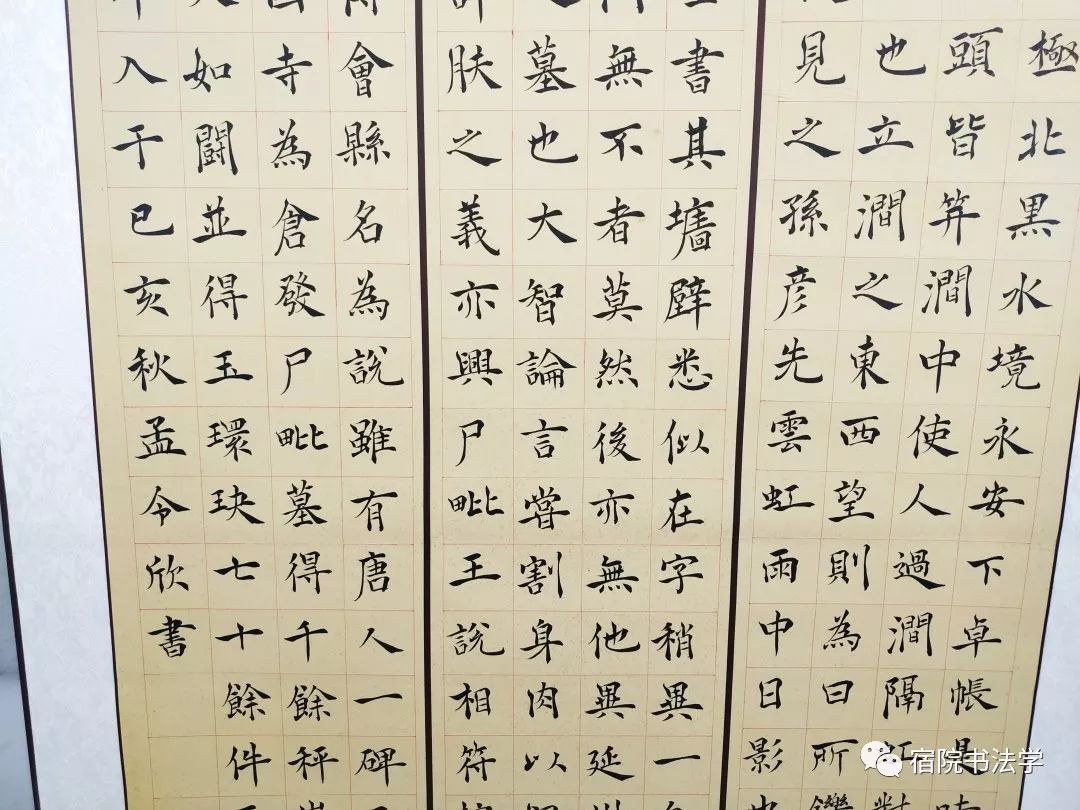 極北黑水境永安下卓帳是
頭皆垂澗中使人過澗隔虹對
也立澗之東西望則為日所鑠
見之孫彦先雲虹雨中日影也
書其墻壁悉似在字稍異一
無不者莫然後亦無他異延
墓也大智論言嘗割身肉以
肤之義亦興尸毗王說相符
會縣名為說雖有唐人一碑
寺為倉發尸毗墓得千餘秤
如鬪並得玉環玦七十餘件
入于已亥秋孟令欣書
宿院书法学